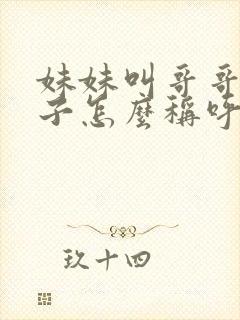 妹妹叫哥哥
子怎麼稱呼
玖十四